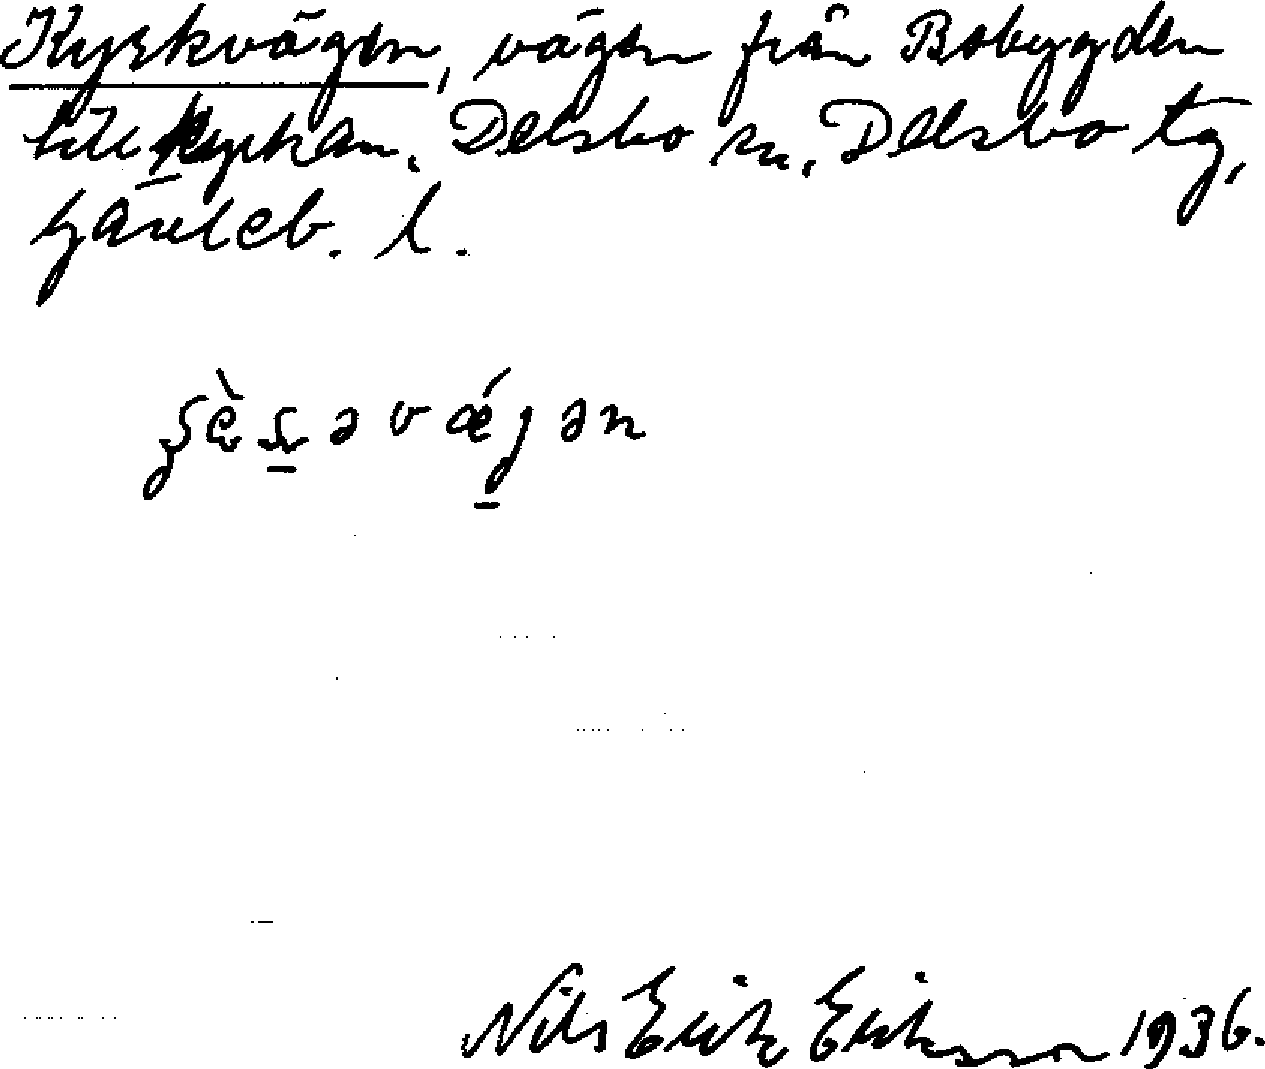 Kyrkvägen, vägen från Bobygden
till kyrkan. Delsbo sn, Delsbo tg,
Gävleb. l.
Nils Erik Eriksson 1936.